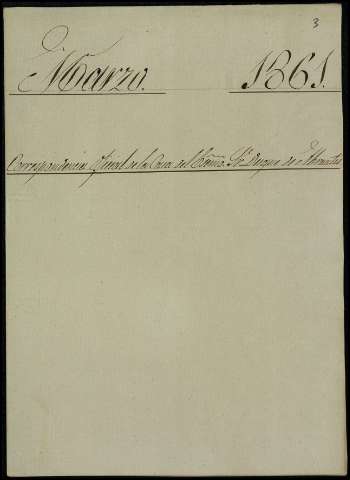 3
Marzo. 1861.
Correspondencia oficial de la Casa del Excmo. Sr. Duque de Abrantes